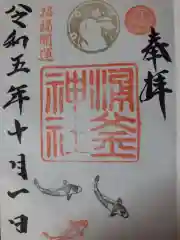 奉拝
招福開運
涌釜神社
令和五年十月一日